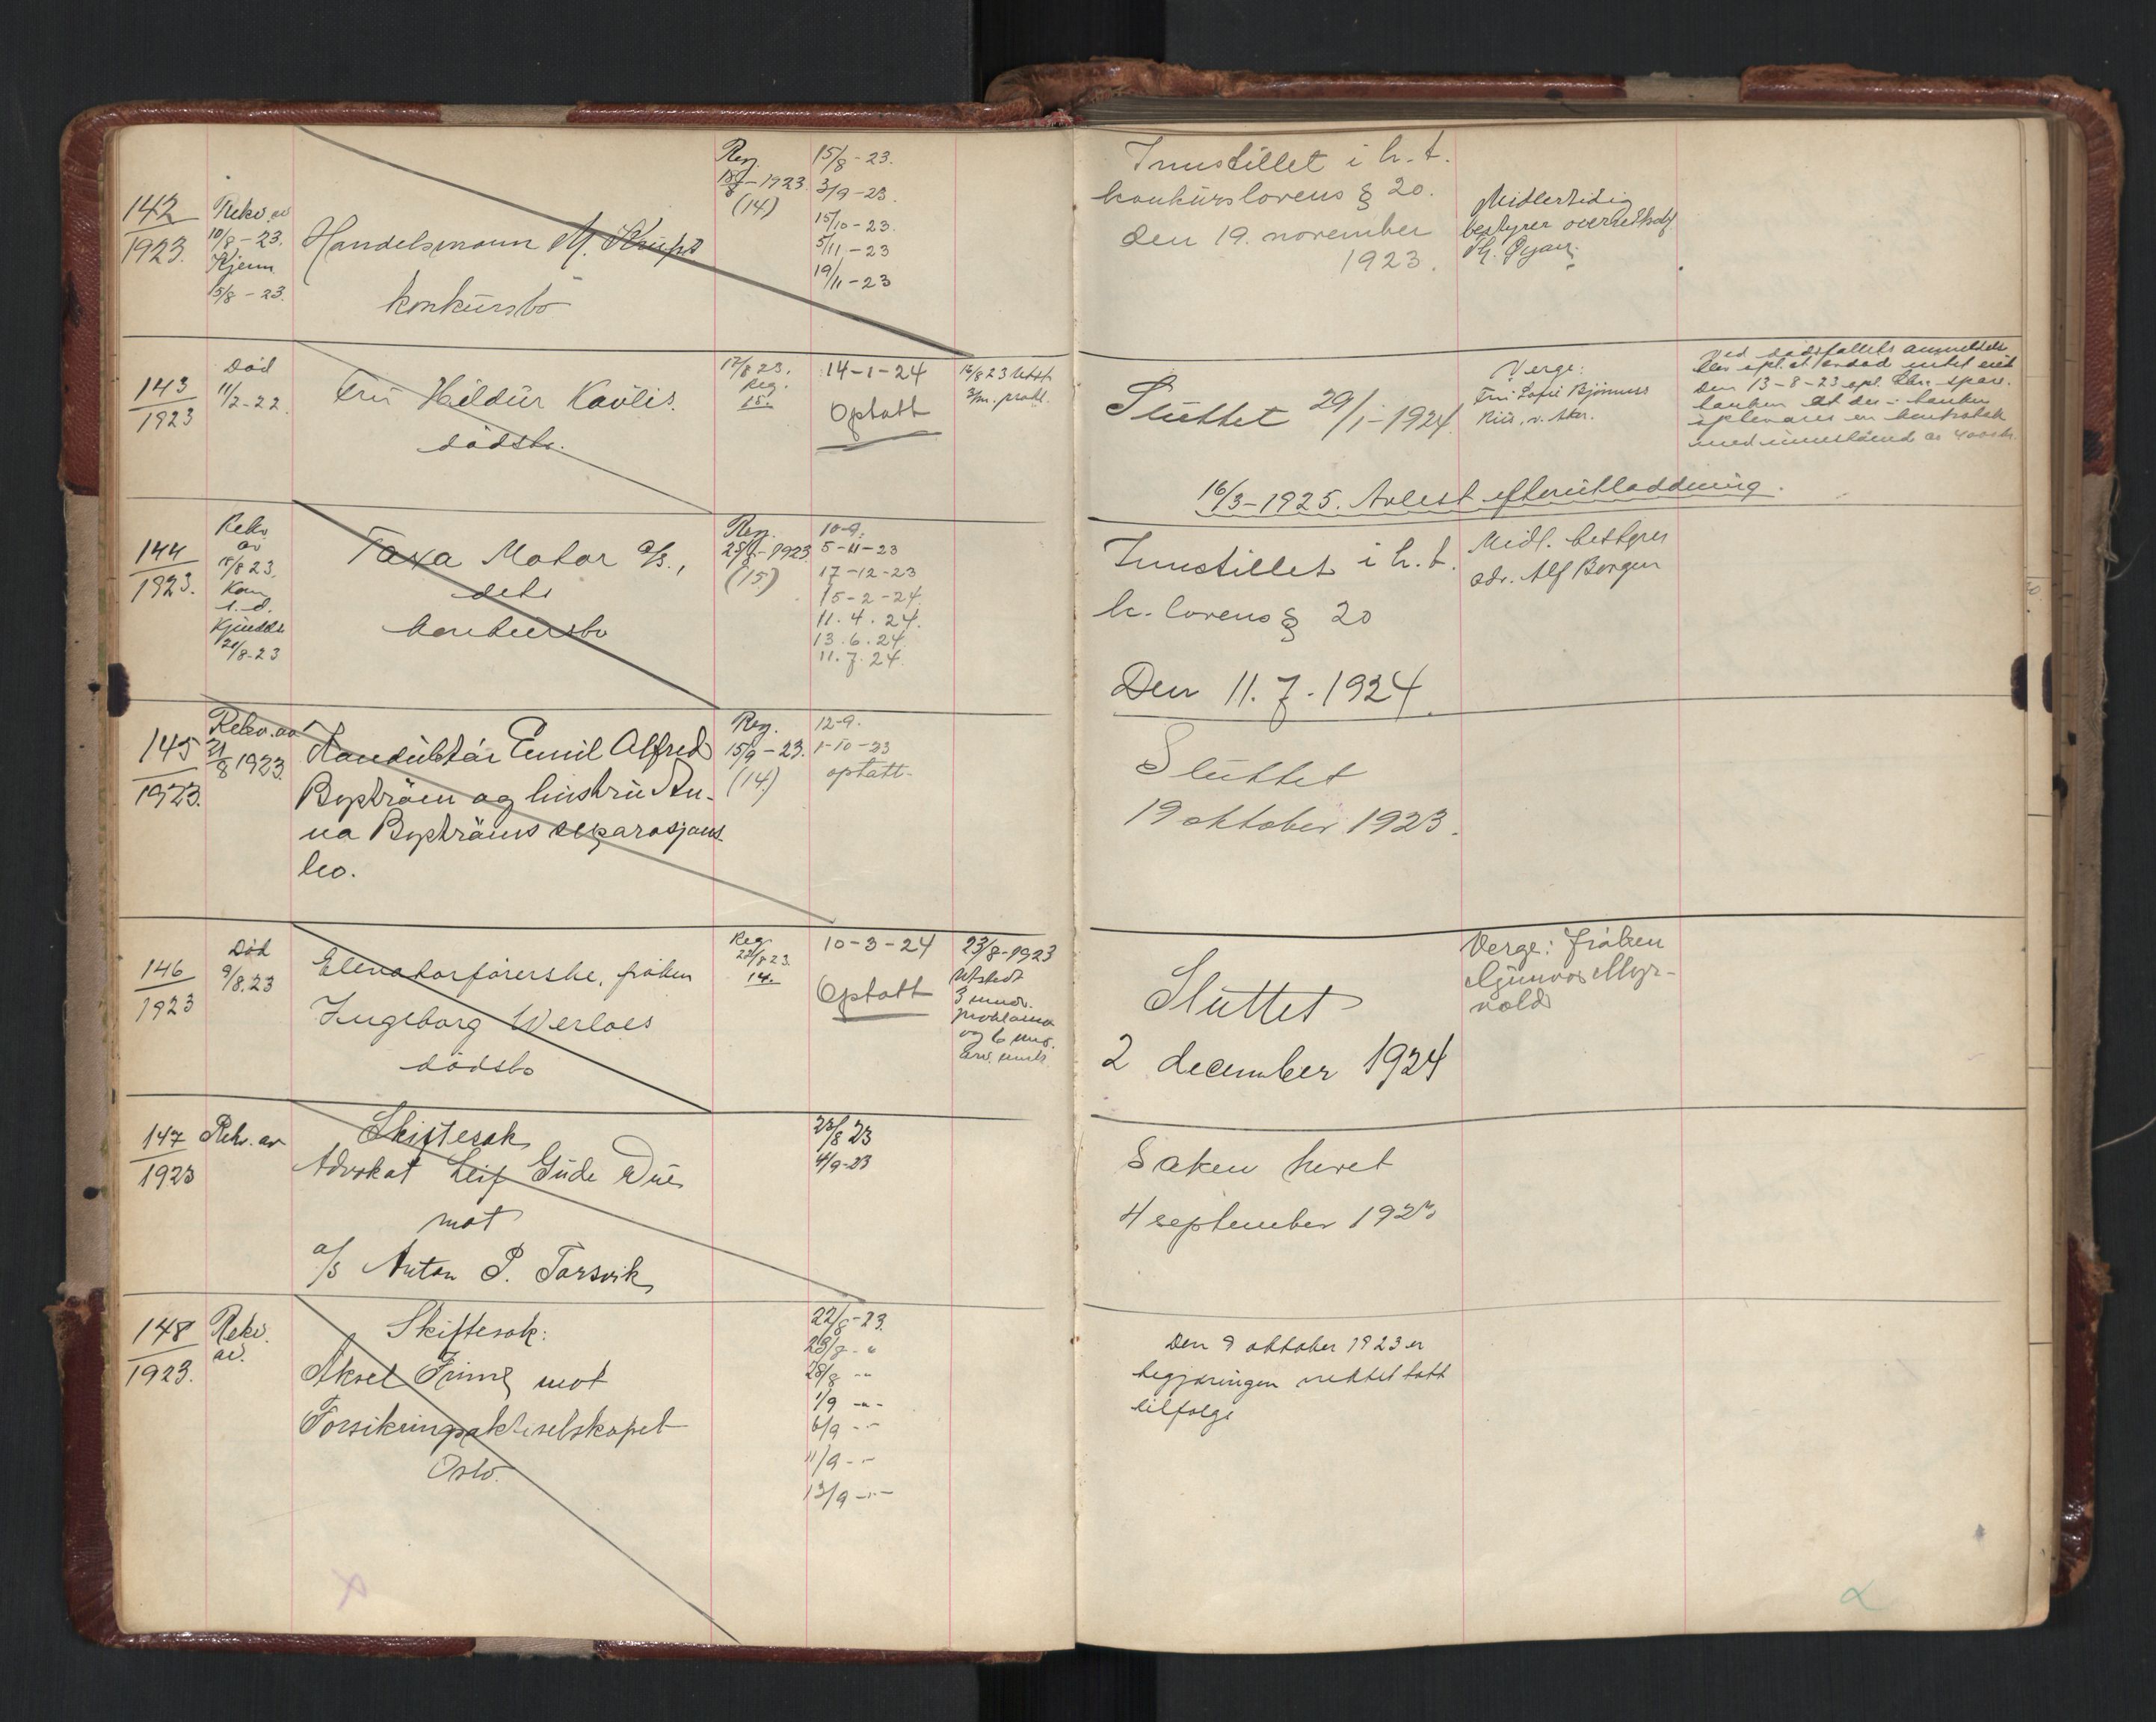 142
1923.
Rekv. av
10/8-23.
Kjenn
15/8-23.
Handelsmann M. Krups
konkursbo
Reg.
18/8-1923
(14)
15/8-23.
3/9-23.
15/10-23.
5/11-23
19/11-23
Innstillet i h. t.
konkurslovens § 20.
den 19. november
1923.
Midlertidig
bestyrer overrettssakf.
143
1923
Død
11/2-22.
Fru Hildur Kavlis
dødsbo.
17/8 23.
Reg.
15.
14-1-24
Optatt
16/8 23 Utst.
3/m. prokl.
Sluttet 29/1-1924
Verge:
Fru Sofie
Ved dødsfallets anmeldelse
blev opl. at avdød intet eiet
Den 13-8-23 opl. Chr. spare-
banken at der i banken
med innestående av 400 kr.
16/3-1925. Avlest efterutloddning.
144
1923.
Rekv
av
18/8 23.
Kom
s. d.
Kjendelse
20/8-23
Taxa Motor a/s.,
dets
konkursbo
Reg.
25/8-1923
(15)
10-9.
5-11-23
17-12-23
15-2-24.
11.4.24.
13.6.24.
11.7.24.
Innstillet i h. t.
k. lovens § 20
Den 11.7.1924.
Midl. bestyrer
adv. Alf Borgen
145
1923.
Rekv. av
21/8 1923.
Konduktør Emil Alfred
Byström og hustru An-
na Byströms separasjons
bo.
Reg.
15/9-23.
(14)
12-9.
1-10-23
optatt-
Sluttet
19 oktober 1923.
146
1923
Død
9/8.23
Elevatorførerske, frøken
Ingeborg Werloes
dødsbo
Reg.
22/8 23.
14.
10-3-24
Optatt
23/8-1923
Utstedt
3 mndr.
proklama
og 6 mnd.
Sluttet
2 december 1924
Verge: frøken
Gunvor Myr-
vold
147
1923
Rekv. av
Skiftesak
Advokat Leif Gude Due
mot
a/s Anton P. Torsvik
23/8 23
4/9-23
Saken hevet
4 september 1923
148
1923.
Rekv.
av.
Skiftesak:
Aksel Friung mot
Forsikringsaktieselskapet
Oslo.
22/8-23.
23/8- "
28/8 - "
1/9 - " -
6/9 - " -
11/9 - " -
13/9 - " -
Den 9 oktober 1923 er
begjæringen nektet tatt
tilfølge